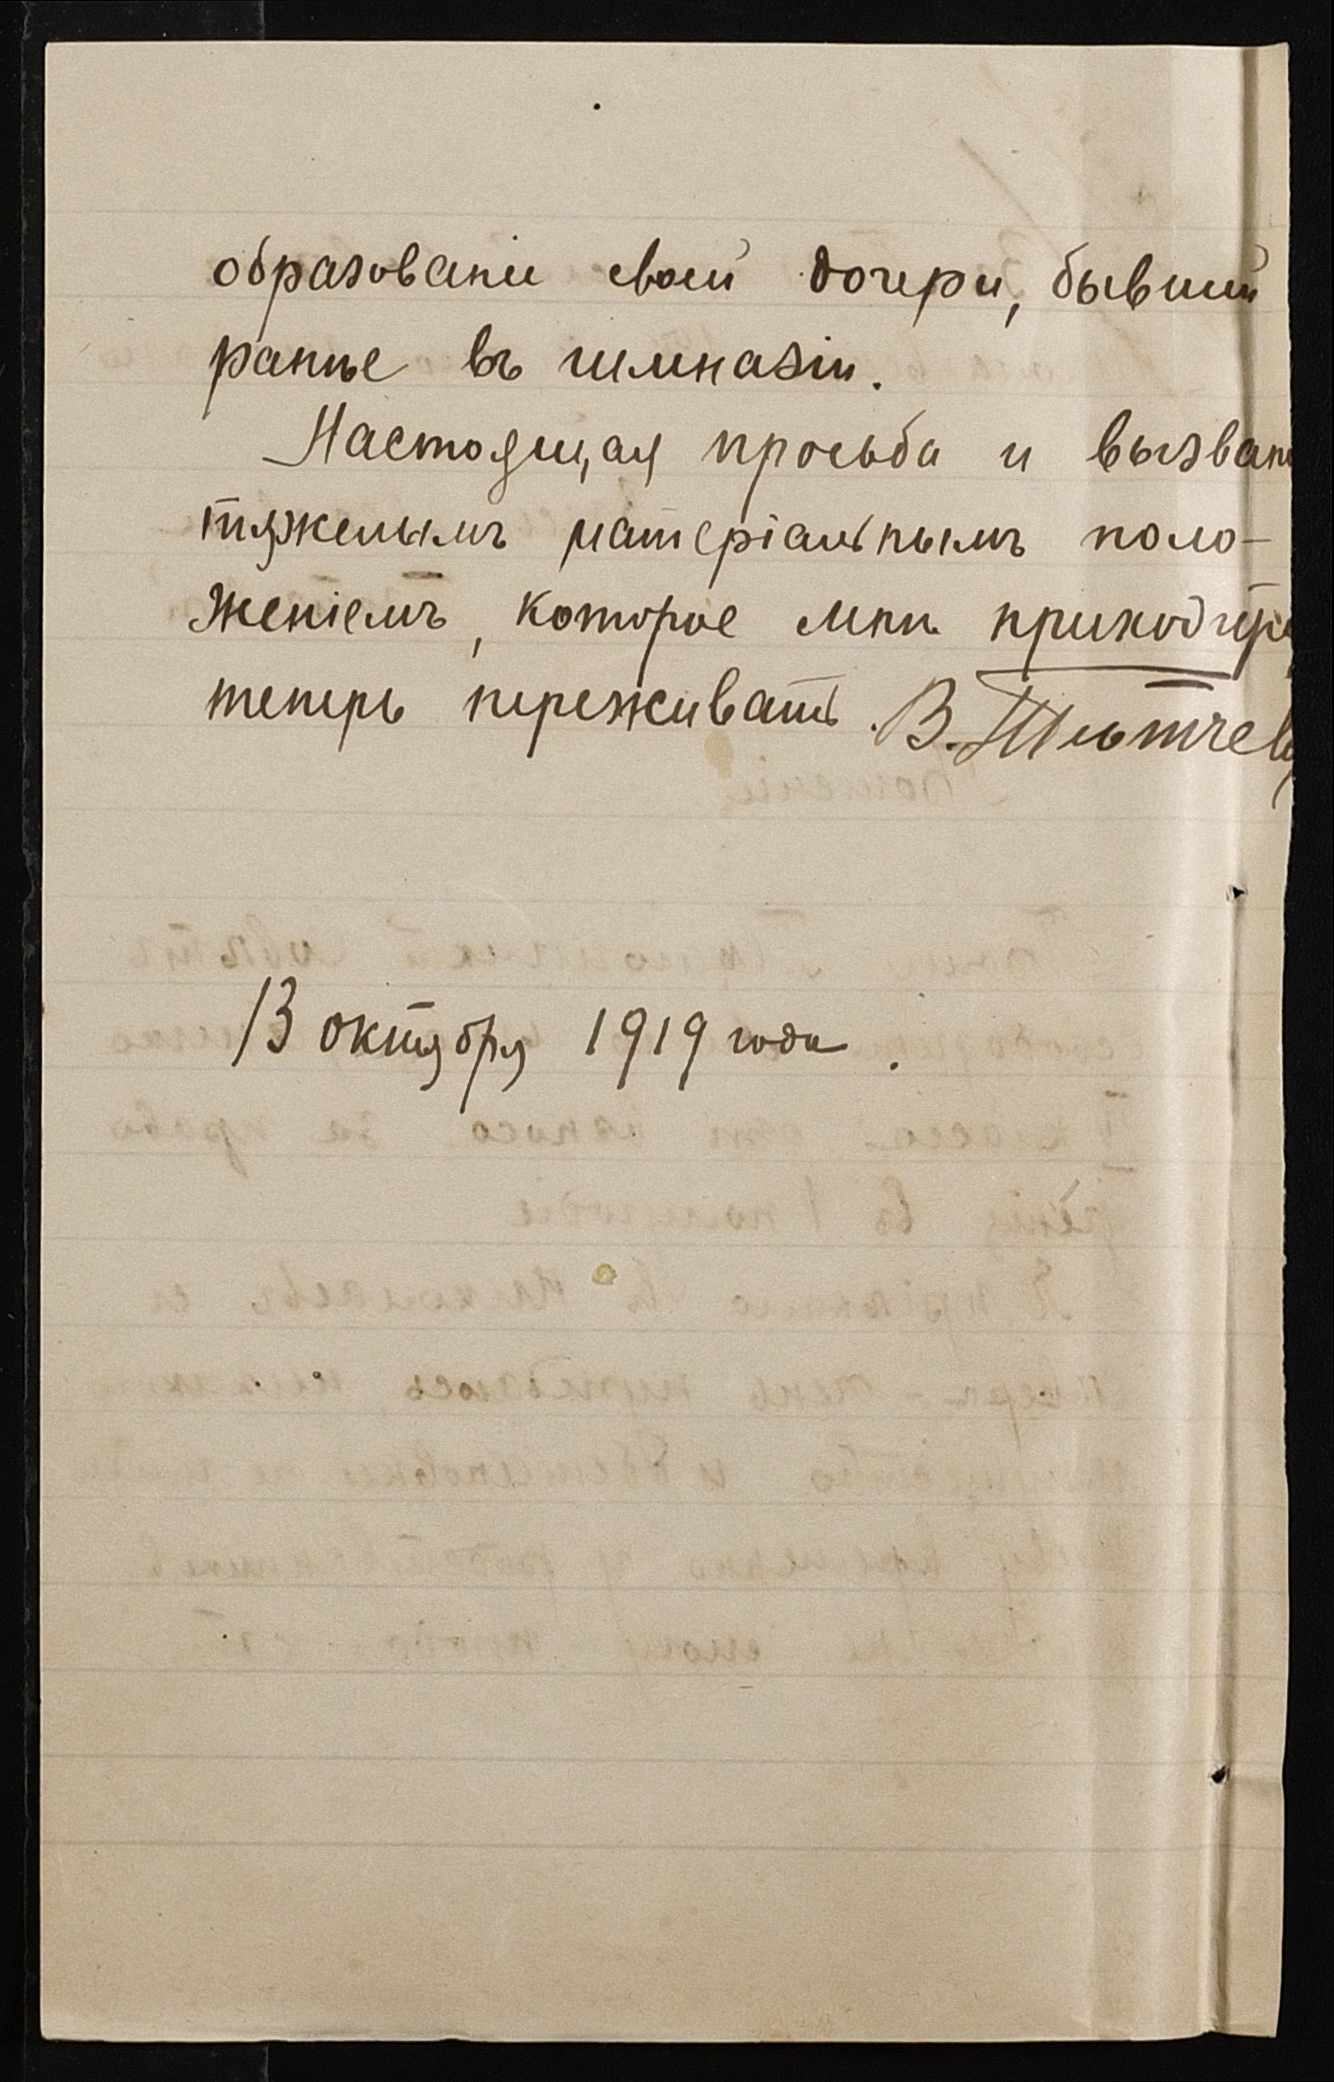 образованіи своей дочери, бывшей
ранѣе въ гимназіи.
Настоящая просьба и вызван
тяжелымъ матеріальнымъ поло-
женіемъ, которое мнѣ приходится
теперь переживать. В. Тютчев
13 октября 1919 года.